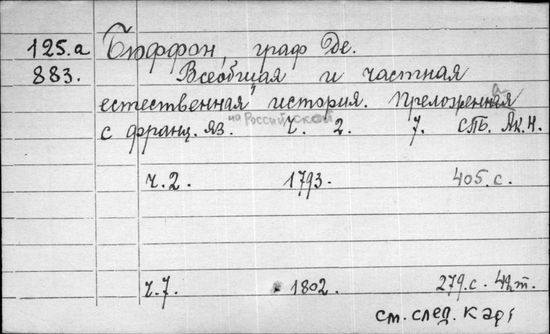 125.а Бюффон, граф Де.
883. Всеобщая и частная
естественная история. Преложенная
с франц. яз. на Российской Ч. 2. 7. СПБ. Ак. Н.
ч. 2. 1793. 405. с.
ч. 7. 1802. 279. с.
см. след. кар